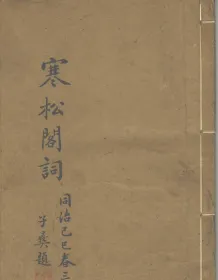 寒松閣詞
同治己巳春三
子彝題